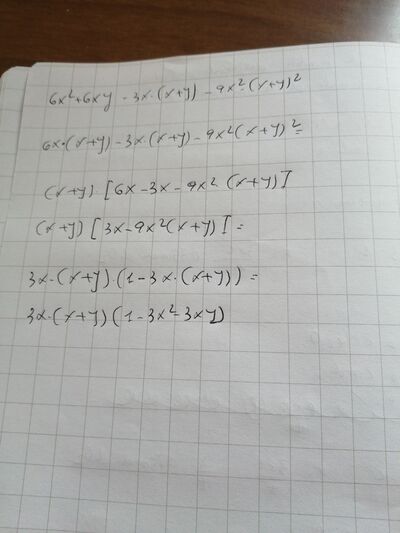 6x²+6xy - 3x·(x+y) - 9x²·(x+y)²
6x·(x+y)-3x·(x+y)-9x²(x+y)²=
(x+y)·[6x-3x-9x²·(x+y)]
(x+y)[3x-9x²(x+y)]=
3x·(x+y)·(1-3x·(x+y))=
3x·(x+y)(1-3x²-3xy)